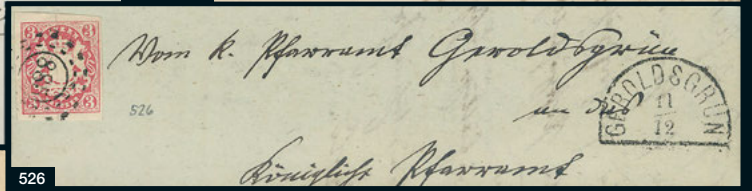 3 3
3 3
Vom k. Pfarramt Geroldsgrün
an das
GEROLDSGRÜN
11
12
526
Königliche Pfarramt
526